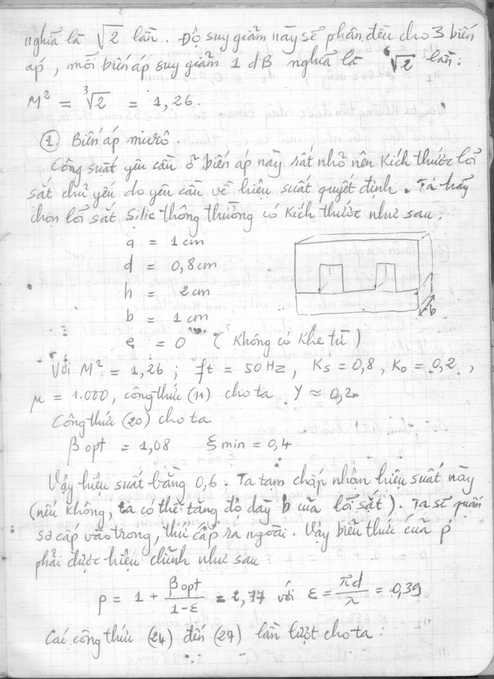 nghĩa là √2 lần. Độ suy giảm này sẽ phân đều cho 3 biến
áp, mỗi biến áp suy giảm 1 dB nghĩa là ⁶√2 lần:
M² = ³√2 = 1,26.
① Biến áp micrô.
Công suất yêu cầu ở biến áp này rất nhỏ nên kích thước lõi
sắt chủ yếu do yêu cầu về hiệu suất quyết định. Ta hãy
chọn lõi sắt Silic thông thường có kích thước như sau:
a = 1 cm
d = 0,8 cm
h = 2 cm
b = 1 cm
e = 0 (không có khe từ)
b
Với M² = 1,26; ft = 50 Hz, Ks = 0,8, Ko = 0,2,
μ = 1.000, công thức (11) cho ta Y ≈ 0,2
Công thức (20) cho ta
β opt = 1,08 ξ min = 0,4
Vậy hiệu suất bằng 0,6. Ta tạm chấp nhận hiệu suất này
(nếu không, ta có thể tăng độ dày b của lõi sắt). Ta sẽ quấn
sơ cấp vào trong, thứ cấp ra ngoài. Vậy biểu thức của ρ
phải được hiệu chỉnh như sau
ρ = 1 + βopt/(1-ε) = 2,77 với ε = πd/λ = 0,39
Các công thức (24) đến (27) lần lượt cho ta: